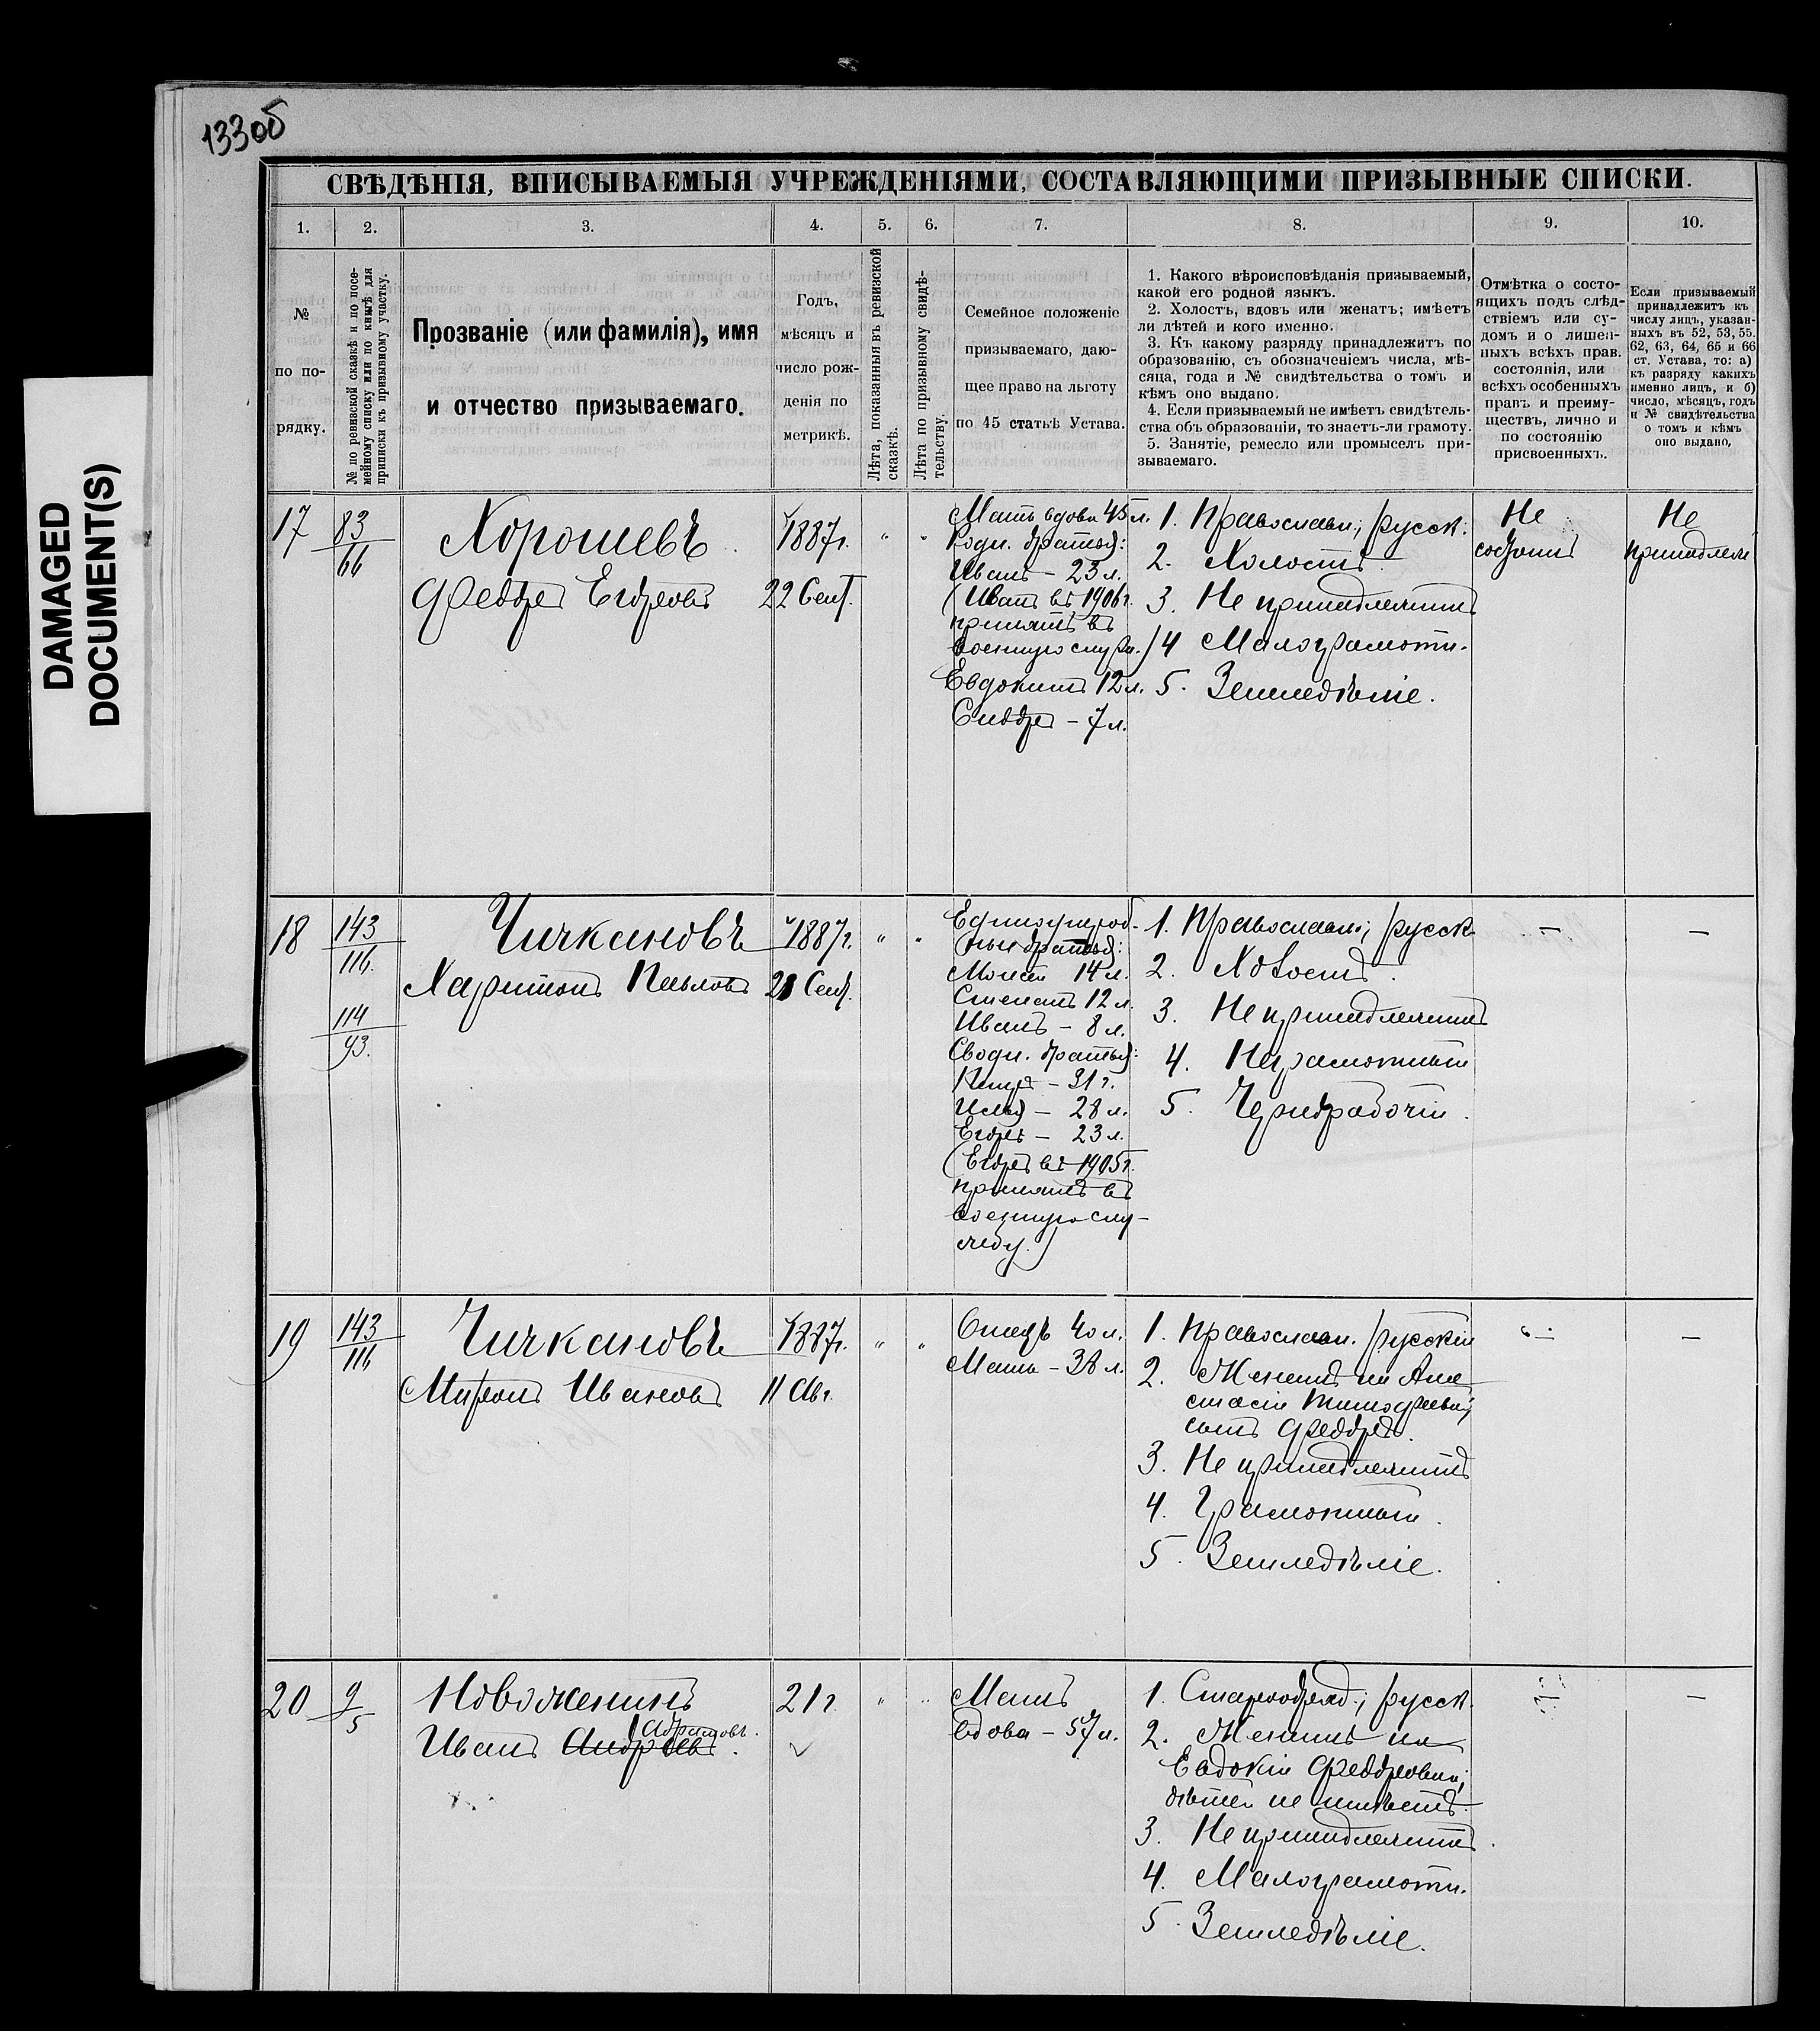 133об
DAMAGED
DOCUMENT(S)
СВѢДѢНІЯ, ВПИСЫВАЕМЫЯ УЧРЕЖДЕНІЯМИ, СОСТАВЛЯЮЩИМИ ПРИЗЫВНЫЕ СПИСКИ.
1. 2. 3. 4. 5. 6. 7. 8. 9. 10.
№
по по-
рядку.
№ по ревизской сказкѣ и по посе-
мейному списку или по книгѣ для
приписки къ призывному участку.
Прозваніе (или фамилія), имя
и отчество призываемаго.
Годъ,
мѣсяцъ и
число рож-
денія по
метрикѣ.
Лѣта, показанныя въ ревизской
сказкѣ.
Лѣта по призывному свидѣ-
тельству.
Семейное положеніе
призываемаго, даю-
щее право на льготу
по 45 статьѣ Устава.
1. Какого вѣроисповѣданія призываемый,
какой его родной языкъ.
2. Холостъ, вдовъ или женатъ; имѣетъ
ли дѣтей и кого именно.
3. Къ какому разряду принадлежитъ по
образованію, съ обозначеніемъ числа, мѣ-
сяца, года и № свидѣтельства о томъ и
кѣмъ оно выдано.
4. Если призываемый не имѣетъ свидѣтель-
ства объ образованіи, то знаетъ-ли грамоту.
5. Занятіе, ремесло или промыселъ при-
зываемаго.
Отмѣтка о состо-
ящихъ подъ слѣд-
ствіемъ или су-
домъ и о лишен-
ныхъ всѣхъ прав.
состоянія, или
всѣхъ особенныхъ
правъ и преиму-
ществъ, лично и
по состоянію
присвоенныхъ.
Если призываемый
принадлежитъ къ
числу лицъ, указан-
ныхъ въ 52, 53, 55.
62, 63, 64, 65 и 66
ст. Устава, то: а)
къ разряду какихъ
именно лицъ, и б)
число, мѣсяцъ, годъ
и № свидѣтельства
о томъ и кѣмъ
оно выдано,
17
83
66
Хорошевъ
Федоръ Егоровъ
1887г.
22 Сент.
" "
Мать вдова 45 л.
Родн. братья:
Иванъ – 23 л.
(Иванъ въ 1906г.
принятъ въ
военную служ.)
Евдокимъ 12 л.
Сидоръ – 7 л.
1. Православн.; русск.
2. Холостъ.
3. Не принадлежитъ
4 Малограмотн.
5. Земледѣліе.
Не
состоитъ
Не
принадлеж
18
143
116.
114
93.
Чичкановъ
Харитонъ Павловъ
1887г.
28 Сент.
" "
Единоутроб-
ные братья:
Моисей 14 л.
Степанъ 12 л.
Иванъ – 8 л.
Сводн. братья:
Петръ – 31 г.
Илья – 28 л.
Егоръ – 23 л.
(Егоръ въ 1905г.
принятъ въ
военную слу-
жбу.)
1. Православн.; русск
2. Холостъ.
3. Не принадлежитъ
4. Неграмотный
5. Чернорабочій.
–
–
19
143
116
Чичкановъ
Миронъ Ивановъ
1887г.
11 Авг.
" "
Отецъ 40 л.
Мать – 38 л.
1. Православн. русскій
2. Женатъ на Ана
стасіи Тимофеевой;
сынъ Федоръ.
3. Не принадлежитъ
4. Грамотный.
5. Земледѣліе.
–
–
20
9
5
Новоженинъ
Абрамовъ.
Иванъ Андреевъ.
21 г
" "
Мать
вдова – 57 л.
1. Старообряд.; русск.
2. Женатъ на
Евдокіи Федоровой;
дѣтей не имѣетъ.
3. Не принадлежитъ.
4. Малограмотн.
5. Земледѣліе.
–